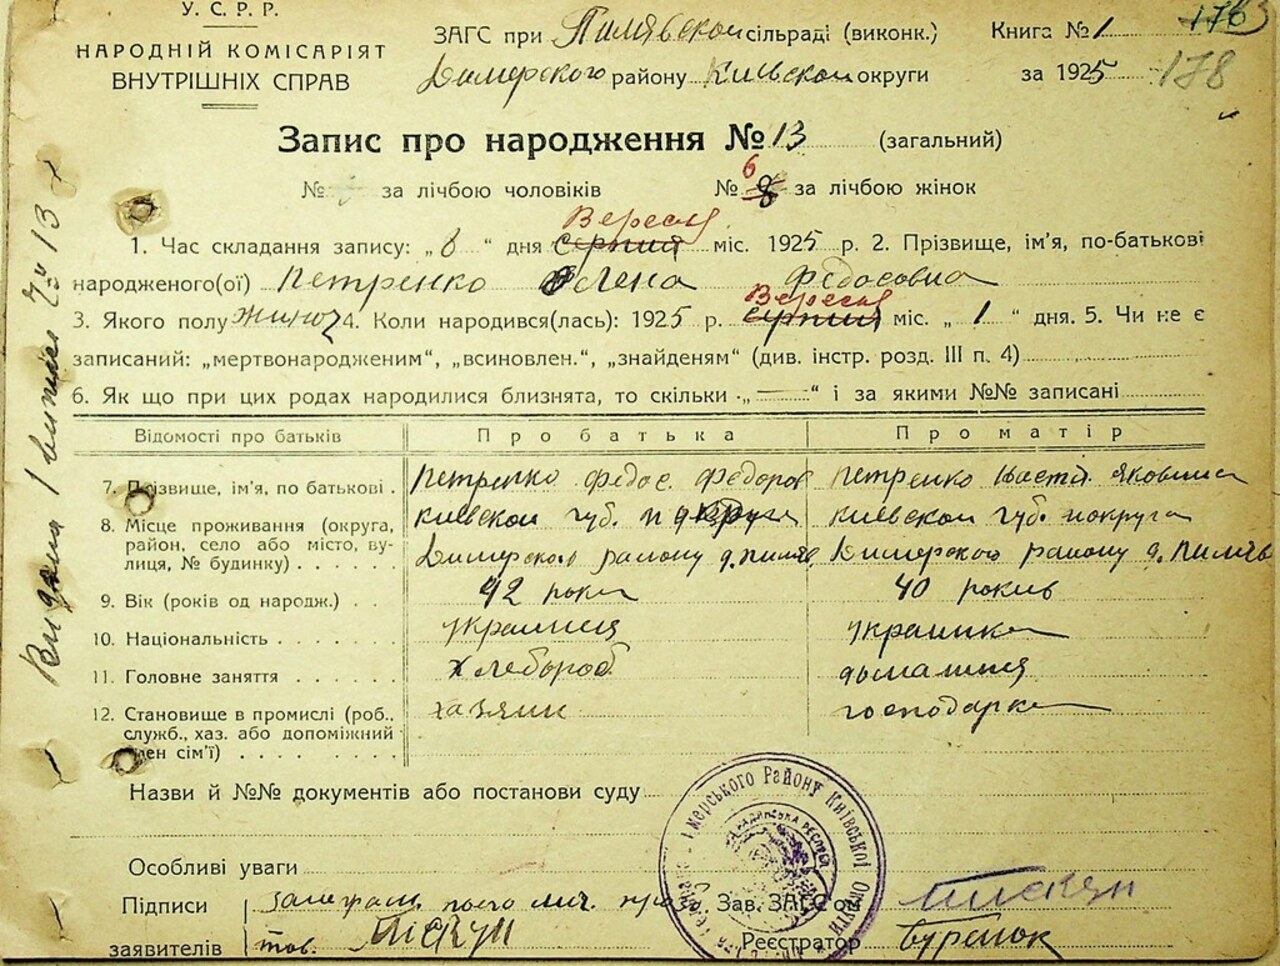 У.С.Р.Р.
НАРОДНІЙ КОМІСАРІЯТ
ВНУТРІШНІХ СПРАВ
ЗАГС при Пилявской сільраді (виконк.)
Димерского району Київской округи
Книга № 1
за 1925
176
178
Запис про народження № 13 (загальний)
№ за лічбою чоловіків № 6 8 за лічбою жінок
Вересня
1. Час складання запису: „8“ дня серпня міс. 1925 р. 2. Прізвище, ім'я, по-батькові
народженого(ої) Петренко Олена Федосовна
Вересня
3. Якого полу жиноч 4. Коли народився(лась): 1925 р. серпня міс. „1“ дня. 5. Чи не є
записаний: „мертвонародженим“, „всиновлен.“, „знайденям“ (див. інстр. розд. III п. 4)
6. Як що при цих родах народилися близнята, то скільки „—“ і за якими №№ записані
Відомості про батьків Про батька Про матір
7. Прізвище, ім'я, по батькові Петренко Федос. Федоров Петренко Настя Яковлина
8. Місце проживання (округа, Киевской губ. покруга Киевской губ. покруга
район, село або місто, ву-
лиця, № будинку) Димерского району д. Пиляв Димерского району д. Пиляв
9. Вік (років од народж.) 42 роки 40 роков
10. Національність украинця украинка
11. Головне заняття хлебороб дымашня
12. Становище в промислі (роб., хазяин господарка
служб., хаз. або допоміжний
член сім'ї)
Назви й №№ документів або постанови суду
Особливі уваги
Підписи
заявителів тов. Піскун
Зав. ЗАГС'ом Піскун
Реєстратор Буренок
мерського Району Київської Округи